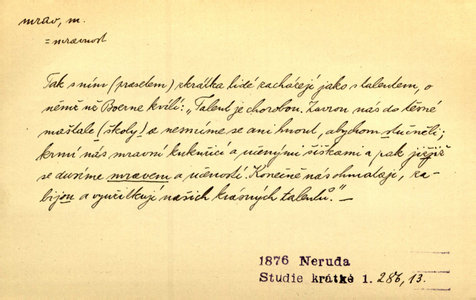 mrav, m.
= mravnost
Tak s ním (praselem) zkrátka lidé zacházejí jako s talentem, o
němž už Boerne kvílí: „Talent je chorobou. Zavrou nás do těsné
maštale (školy) a nesmíme se ani hnout, abychom stučněli;
krmí nás mravní kukuřicí a učenými šiškami a pak již
se dusíme mravem a učeností. Konečně nás ohmatají, za-
bijou a vyučitkují našich krásných talentů." —
1876 Neruda
Studie krátké 1. 286, 13.